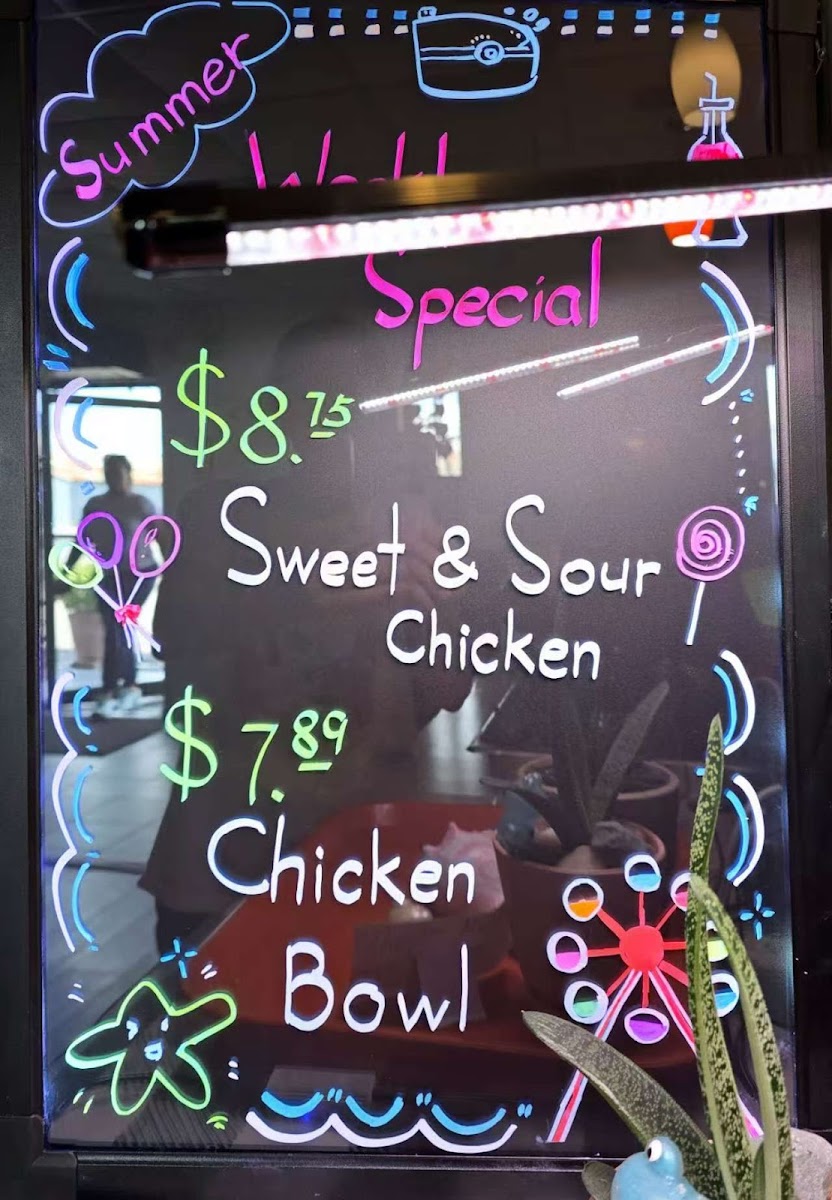 Summer
Special
$8.75
Sweet & Sour
Chicken
$7.89
Chicken
Bowl